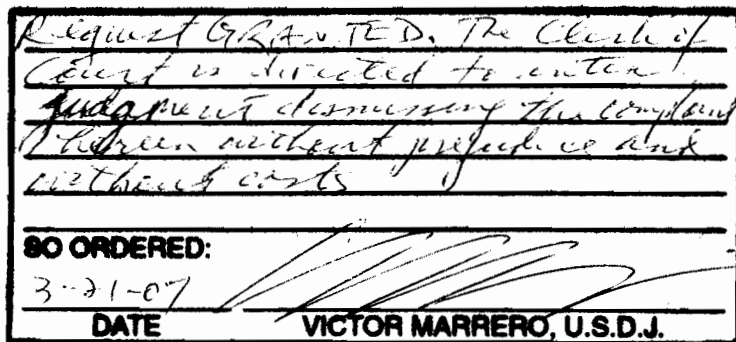 Request GRANTED. The Clerk of
Court is directed to enter
judgment dismissing the complaint
herein without prejudice and
without costs
SO ORDERED:
3-21-07
DATE VICTOR MARRERO, U.S.D.J.